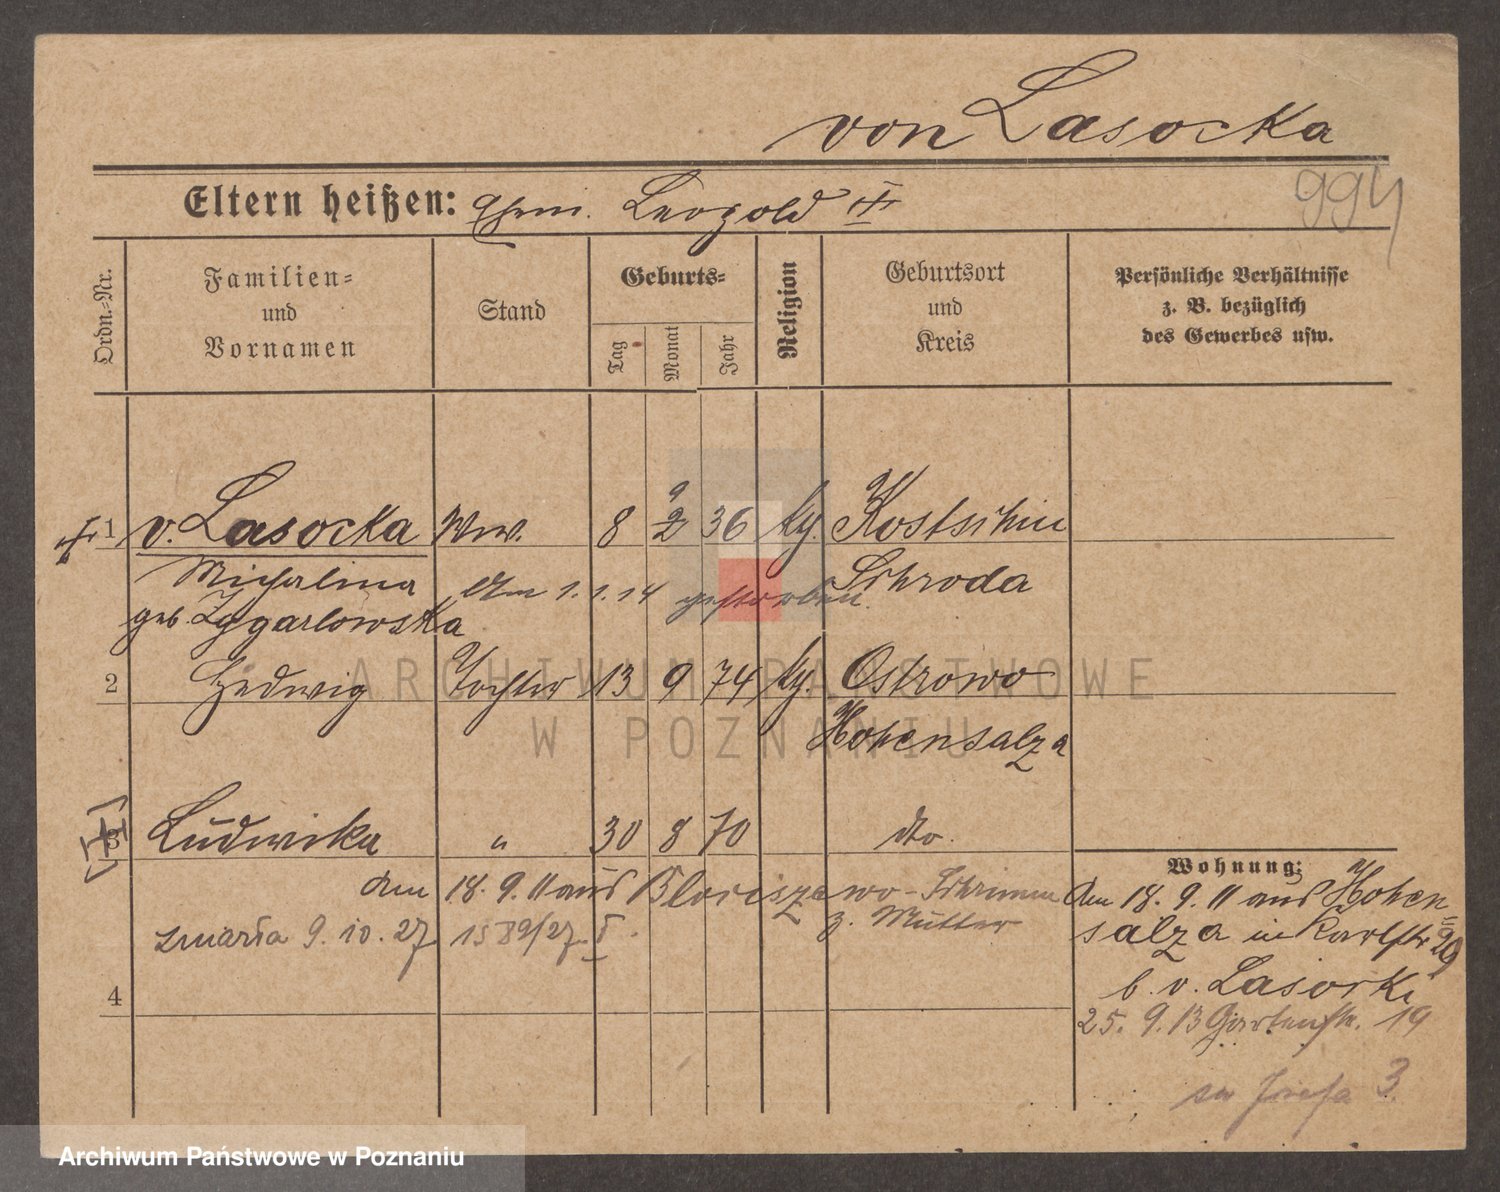 von Lasocka
Eltern heißen: Ehem. Leopold †
994
Ordn.-Nr.
Familien-
und
Vornamen
Stand
Geburts-
Tag
Monat
Jahr
Religion
Geburtsort
und
Kreis
Persönliche Verhältnisse
z. B. bezüglich
des Gewerbes usw.
1 v. Lasocka Ww. 8 9 2 36 kg. Kostschin
Michalina Am 1.1.14 gestorben. Schroda
geb. Zygarlowska
2 Hedwig Tochter 13 9 74 kg. Ostrowo
Hohensalza
3 Ludwika " 30 8 70 dto.
Am 18. 9. 11 aus
z. Mutter
zmarła 9. 10. 27 1589/27 I.
4
Wohnung:
Am 18. 9. 11 aus Hohen
salza in Karlstr 29
b. v. Lasocki
25. 9. 13 Gartenstr. 19
św Józefa 3.
ARCHIWUM PAŃSTWOWE
W POZNANIU
Archiwum Państwowe w Poznaniu